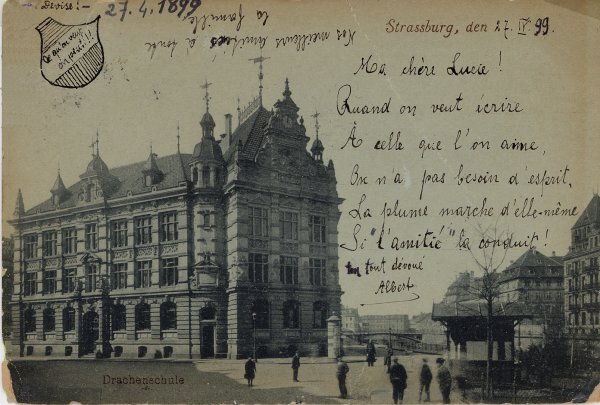 Devise! -
Ce qu'on veut
on peut!!!
27. 4. 1899
Nos meilleurs amitiés à toute
la famille
Strassburg, den 27. IV. 99.
Ma chère Lucie!
Quand on veut écrire
À celle que l'on aime,
On n'a pas besoin d'esprit,
La plume marche d'elle-même
Si "l'amitié" la conduit!
tout dévoué
Albert
Drachenschule